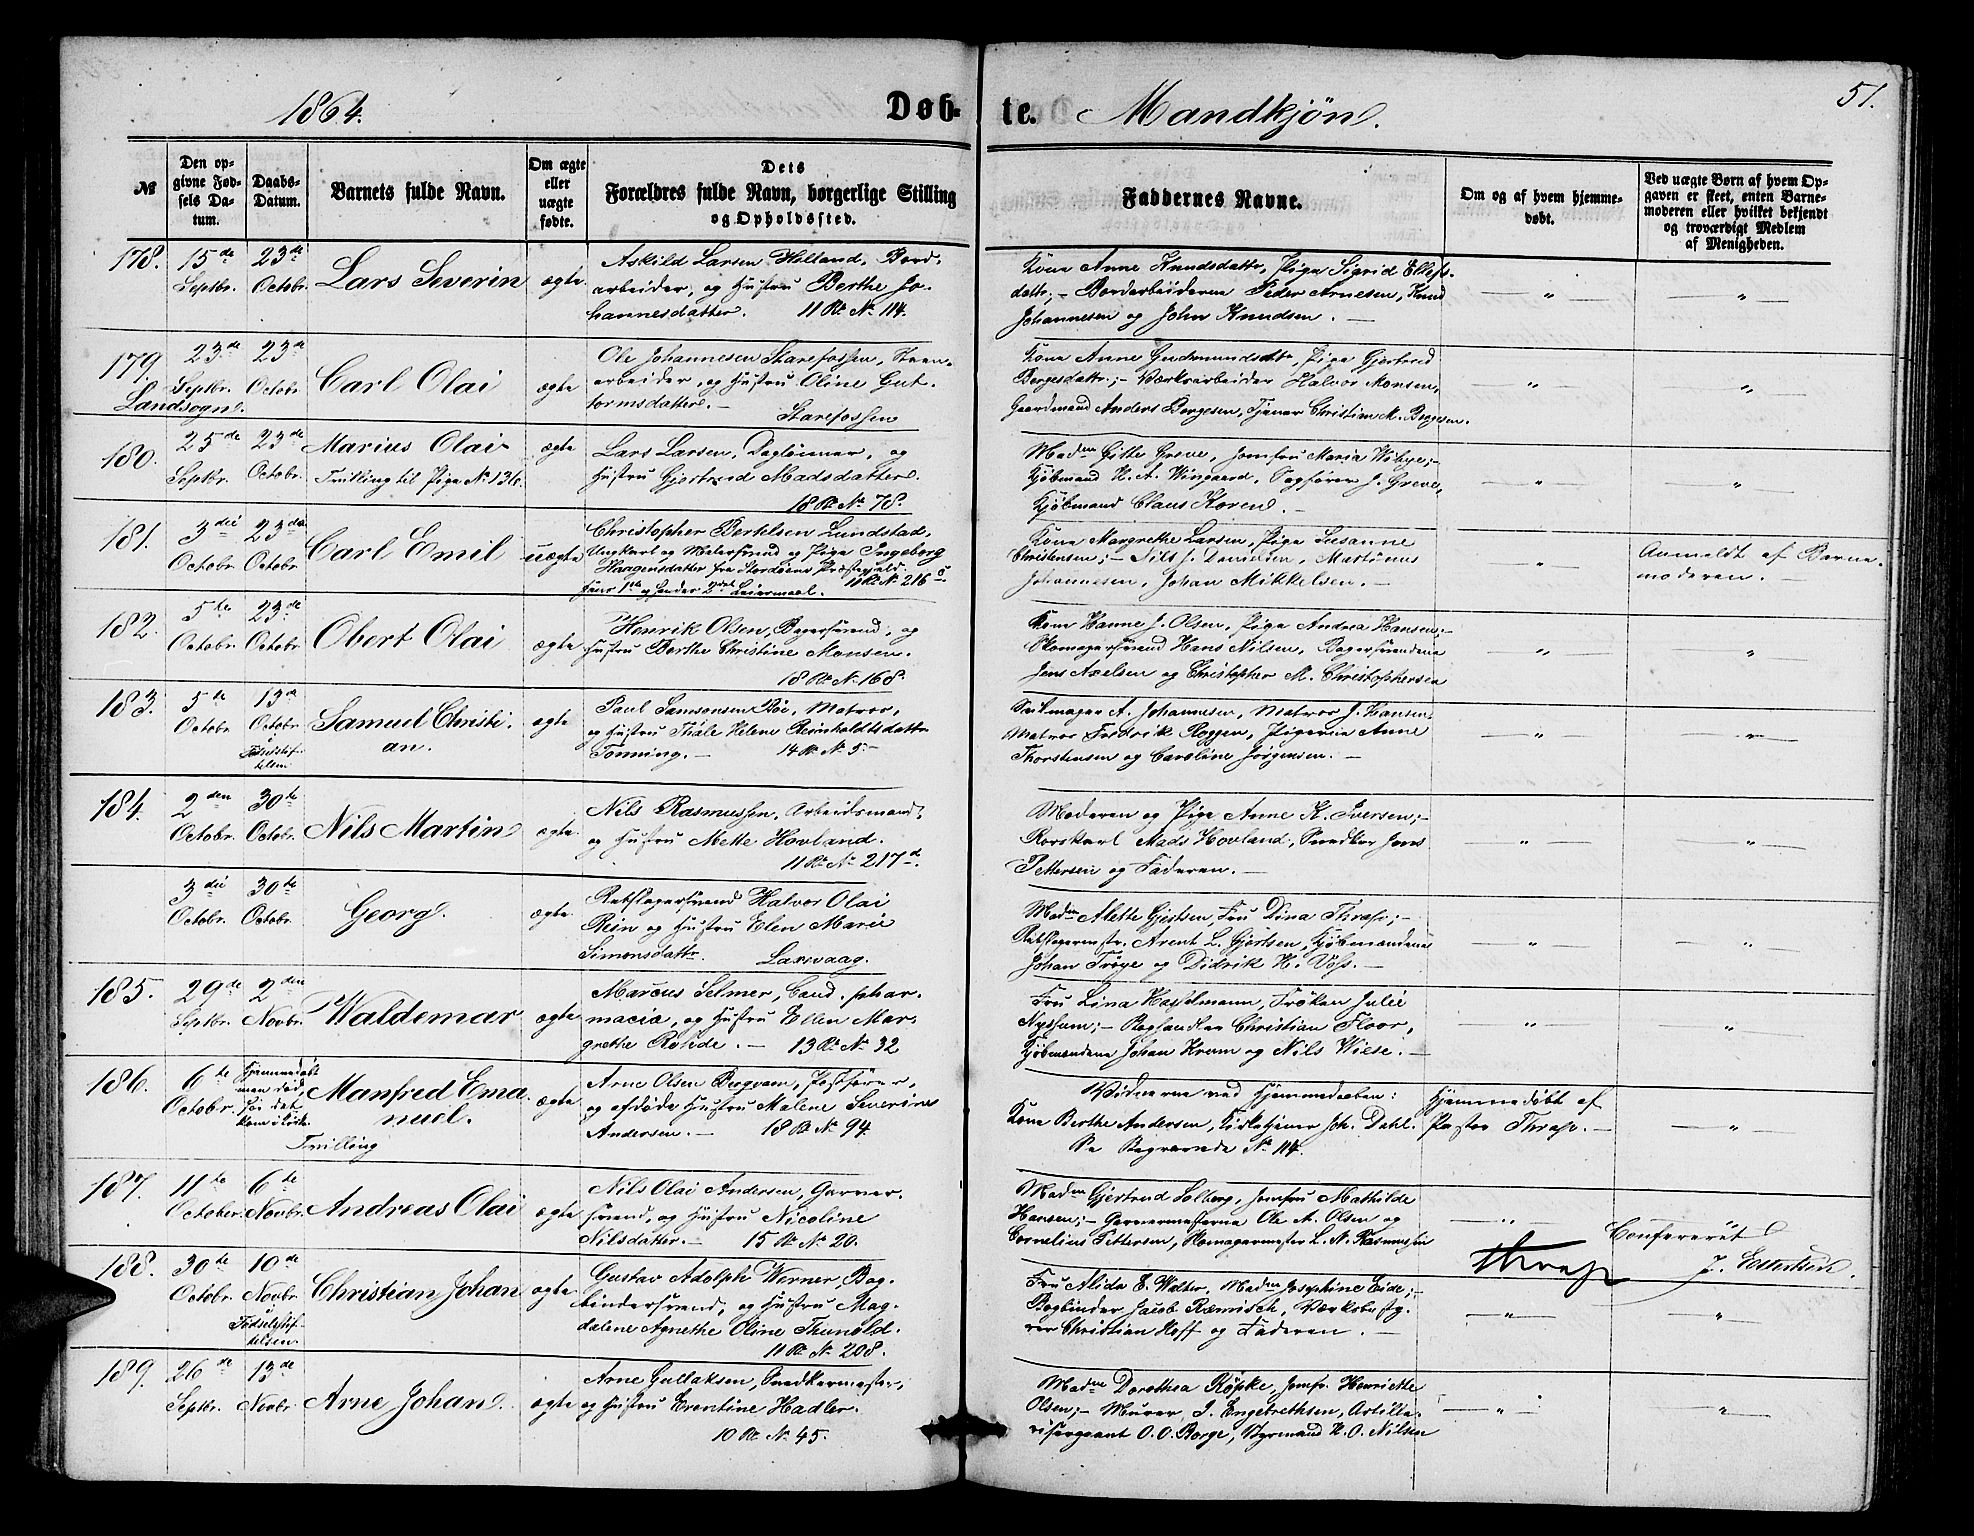 1864.
Døb-
te.
Mandkjøn.
51.
№
Den op-
givne Fød-
sels Da-
tum.
Daabs-
Datum.
Barnets fulde Navn.
Om ægte
eller
uægte
fødte.
Dets
Forældres fulde Navn, borgerlige Stilling
og Opholdssted.
Faddernes Navne.
Om og af hvem hjemme-
døbt.
Ved uægte Børn af hvem Op-
gaven er skeet, enten Barne-
moderen eller hvilket bekjendt
og troværdigt Medlem
af Menigheden.
178.
15de
Septbr.
23de
Octobr.
Lars Severin
ægte
Askild Larsen Helland, Bord-
arbeider, og Hustru Berthe Jo-
hannesdatter. 11 Rd. No 114.
Kone Anne Knudsdattr, Pige Sigrid Ellefs-
dattr; - Bordarbeiderne Peder Arnesen, Knud
Johannesen og John Knudsen. -
179.
Landsogn.
23de
Septbr.
23de
Octobr.
Carl Olai
ægte
Ole Johannesen Starefossen, Steen-
arbeider, og Hustru Oline Gut-
tormsdatter. -
Starefossen
Kone Anne Gudmundsdattr, Pige Gjertrud
Børgesdattr; - Værksarbeider Halvor Monsen,
Gaardmand Anders Børgesen, Tjener Christian M. Børgesen.
180.
25de
Septbr.
23de
Octobr.
Marius Olai
Tvilling til Pige No 136.
ægte
Lars Larsen, Dagleiner, og
Hustru Gjertrud Madsdatter.
18 Rd. No 78.
Madm Gitte Greve, Jomfru Maria Wibye; -
Kjøbmand H. A. Wingaard, Sagfører J. Greve,
Kjøbmand Claus Koren.
181.
3die
Octobr.
23de
Octobr.
Carl Emil
uægte
Christopher Bertelsen Lundstad,
Ungkarl og Malersvend og Pige Ingeborg
Haagensdatter fra Stordøens Præstegjeld.
Hans 1ste og hendes 2det Leiermaal. 11 Rd. No 216 c
Kone Margrethe Larsen, Pige Susanne
Christensen; - Nils J. Danielsen, Martinus
Johannesen, Johan Mikkelsen. -
Anmeldt af Barne-
moderen. -
182.
5te
Octobr.
23de
Octobr.
Obert Olai
ægte
Henrik Olsen, Bagersvend, og
Hustru Berthe Christine Monsen.
18 Rd. No 168.
Kone Hanne J. Olsen, Pige Andrea Hansen; -
Skomagersvend Hans Nilsen, Bagersvendene
Jens Axelsen og Christopher M. Christophersen
183.
5te
Octobr.
13de
Octobr.
i
Fødselsstif-
telsen
Samuel Christi-
an.
ægte
Paul Samsonsen Bøe, Matros,
og Hustru Thale Helene Reinholdtsdattr
Tønning. - 14 Rd. No 5. -
Seilmager A. Johannesen, Matros J. Hansen,
Matros Fredrik Roggen, Pigerne Anne
Thorstensen og Caroline Jørgensen. -
184.
2den
Octobr.
30te
Octobr.
Nils Martin
ægte.
Nils Rasmussen, Arbeidsmand,
og Hustru Mette Hovland.
11 Rd. No 217 d.
Moderen og Pige Anne K. Iversen; -
Rorskarl Mads Hovland, Snedker Jens
Pettersen og Faderen. -
3die
Octobr.
30te
Octobr.
Georg.
ægte.
Rebslagersvend Halvor Olai
Rein og Hustru Elen Marie
Simonsdattr. Laxevaag.
Madm Alette Gjertsen, Fru Dina Thrap; -
Rebslagermstr. Arent L. Gjertsen, Kjøbmændene
Johan Trøye og Didrik H. Voss. -
185.
29de
Septbr.
2den
Novbr.
Waldemar
ægte
Marcus Selmer, Cand. phar-
macia, og Hustru Ellen Mar-
grethe Rohde. - 13 Rd. No 32
Fru Lina Hasselmann, Frøken Julie
Nyssum; - Boghandler Christian Floor,
Kjøbmændene Johan Kram og Nils Wiese. -
186.
6te
Octobr.
Hjemmedøbt
men død,
før det
kom i Kirke.
Manfred Ema-
nuel.
Tvilling
ægte
Arne Olsen Bergvam, Postfører,
og afdøde Hustru Malene Severine
Andersen. - 18 Rd. No 94.
Vidnerne ved Hjemmedaaben:
Kone Berthe Andersen, Kirketjener Joh. Dahl.
Se Begravede No 114.
Hjemmedøbt af
Pastor Thrap. -
187.
11te
October.
6te
Novbr.
Andreas Olai
ægte
Nils Olai Andersen, Garver-
svend, og Hustru Nicoline
Nilsdatter. - 15 Rd. No 20.
Madm Gjertrud Solberg, Jomfru Mathilde
Hansen; - Garvermesterne Ole A. Olsen og
Cornelius Pettersen, Skomagermester L. N. Rasmussen
Confereret
Thrap
188.
30te
Octobr.
10de
Novbr.
i
Fødselsstif-
telsen.
Christian Johan
ægte
Gustav Adolph Werner, Bog-
bindersvend, og Hustru Mag-
dalene Agnethe Oline Thunold.
11 Rd. No 208.
Fru Alida E. Walter, Madm Josephine Eide; -
Bogbinder Jacob Remisch, Værksbesty-
rer Christian Hoff og Faderen. -
189.
26de
Septbr.
13de
Novbr.
Arne Johan
ægte
Arne Gullaksen, Snedkermester,
og Hustru Erentine Hadler.
10 Rd. No 45.
Madm Dorothea Køpke, Jomfr. Henriette
Olsen; - Murer I. Engebrethsen, Artille-
risergeant O. O. Borge, Styrmand H. O. Nilsen